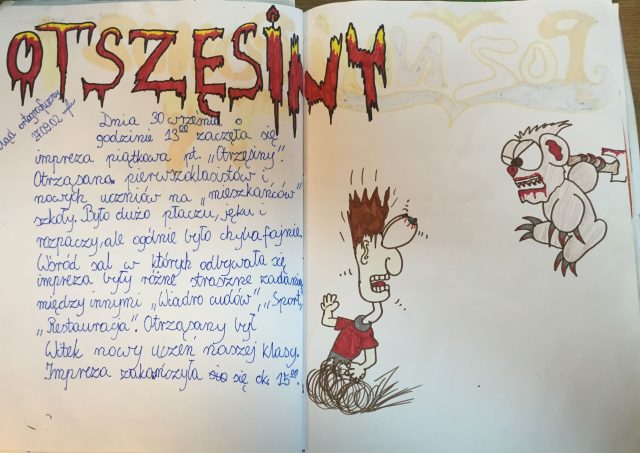 OTSZĘSINY
błąd ortograficzny
27.09.02
Dnia 30 wrzemia o
godzinie 13⁰⁰ zaczęła się
impreza piątkowa pt. „Otrzęsiny".
Otrząsana pierwszoklasistów i
nowych uczniów na „mieszkańców"
szkoły. Było dużo płaczu, jęku i
rozpaczy, ale ogólnie było chyba fajnie.
Wśród sal w których odbywała się
impreza były różne straszne zadania
między innymi „Wiadro cudów", „Sport",
„Restauracja". Otrząsany był
Witek nowy uczeń naszej klasy.
Impreza zakończyła się ok. 15⁰⁰.